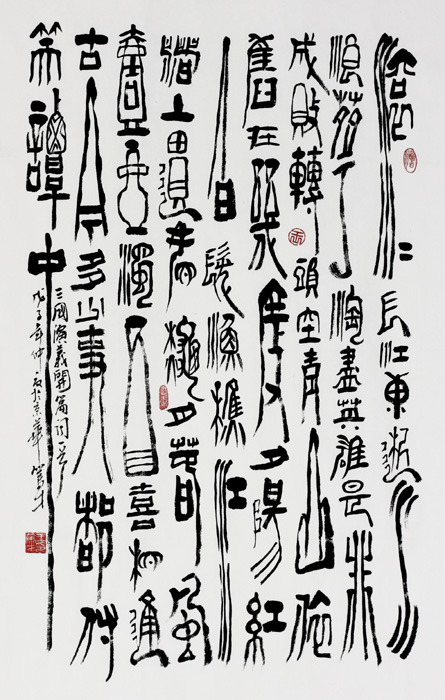 滾滾長江東逝水
浪花淘盡英雄是非
成敗轉頭空青山依
舊在幾度夕陽紅
白髮漁樵江
渚上慣看秋月春風
壹壺濁酒喜相逢
古今多少事都付
笑譚中
三國演義開篇詞一首
戊子年仲夏於京華